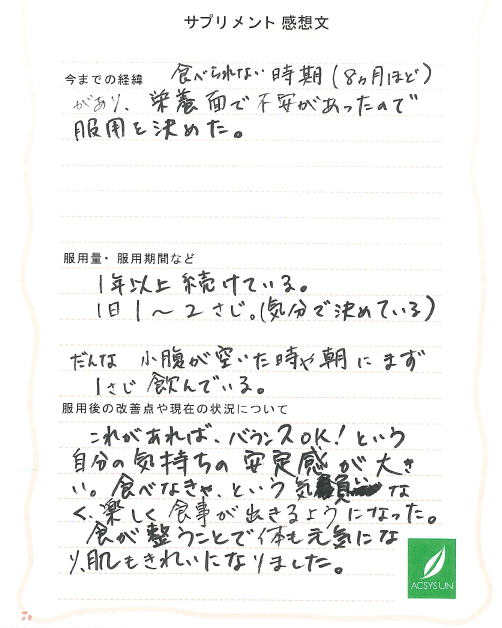 サプリメント 感想文
今までの経緯 食べられない時期(8ヶ月ほど)
があり、栄養面で不安があったので
服用を決めた。
服用量・服用期間など
1年以上続けている。
1日1〜2さじ。(気分で決めている)
だんな 小腹が空いた時や朝にまず
1さじ飲んでいる。
服用後の改善点や現在の状況について
これがあれば、バランスOK!という
自分の気持ちの安定感が大き
い。食べなきゃ、という気負いな
く、楽しく食事が出きるようになった。
食が整うことで体も元気にな
り、肌もきれいになりました。
ACSYSUN